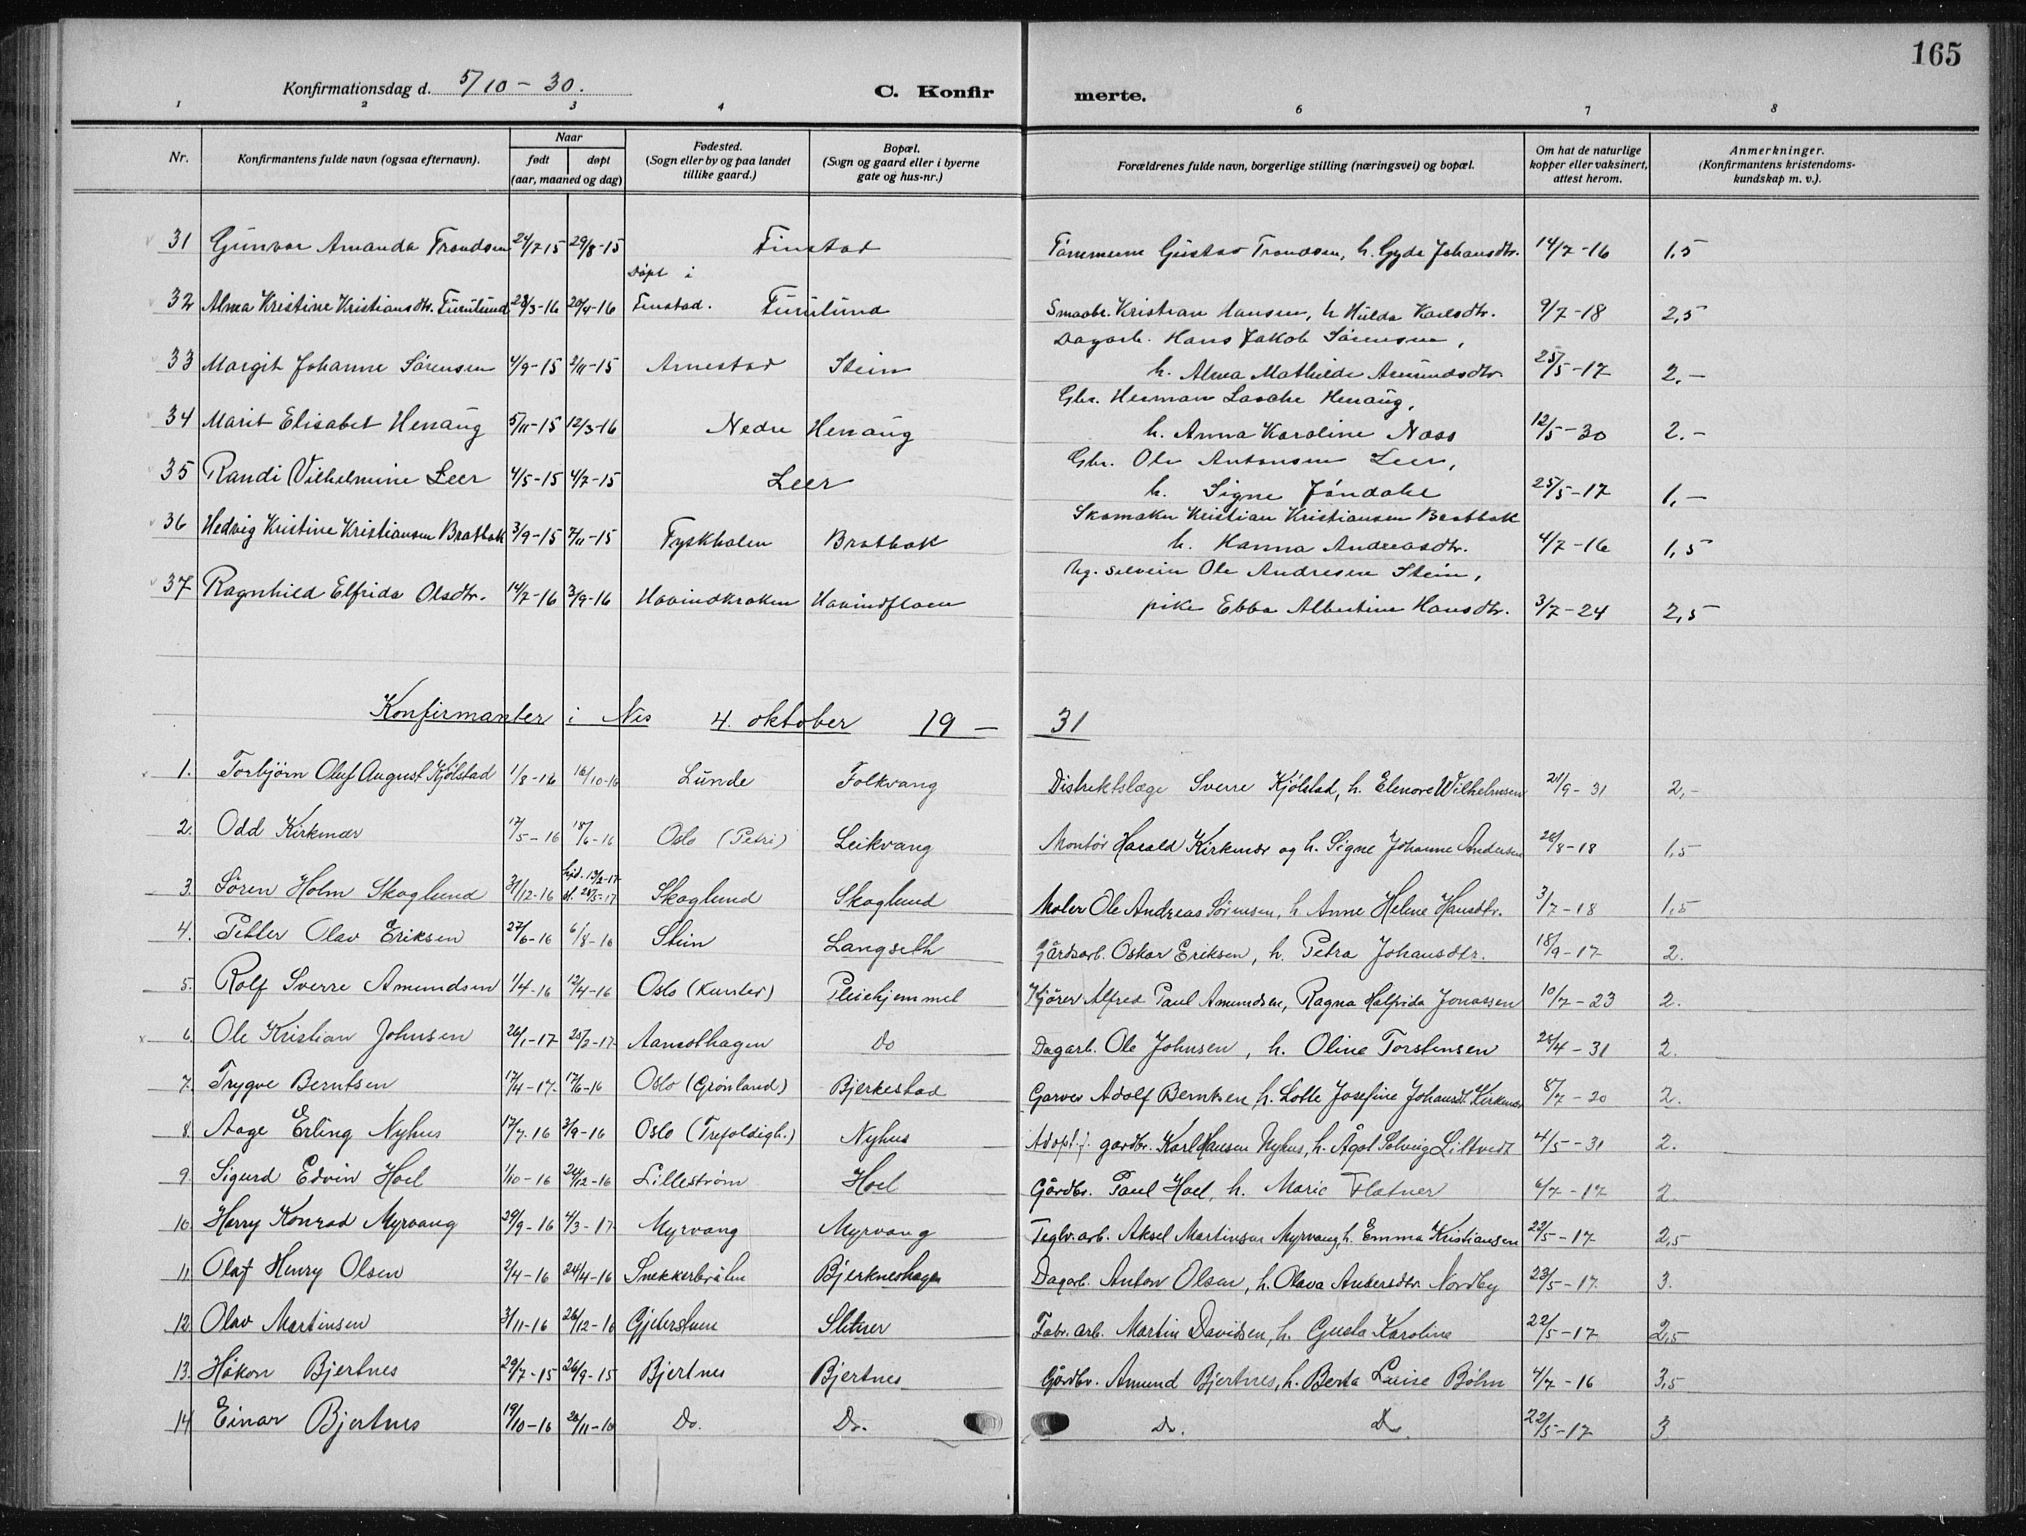 165
Konfirmationsdag d. 5/10 - 30.
C. Konfir merte.
1 2 3 4 6 7 8
Nr. Konfirmantens fulde navn (ogsaa efternavn). Naar født døpt (aar, maaned og dag) Fødested. (Sogn eller by og paa landet tillike gaard.) Bopæl. (Sogn og gaard eller i byerne gate og hus-nr.) Forældrenes fulde navn, borgerlige stilling (næringsvei) og bopæl. Om hat de naturlige kopper eller vaksinert, attest herom. Anmerkninger. (Konfirmantens kristendoms-kundskap m. v.).
31 Gunvor Amanda Trondsen 24/7-15 29/8-15 Finstad Tømmerm Gustav Trondsen, h. Gyda Johansdtr. 14/7-16 1,5
Døpt i
32 Alma Kristine Kristiansdtr. Furulund 28/3-16 20/4-16 Finstad. Furulund Smaabr. Kristian Hansen, h Hulda Karlsdtr. 9/7-18 2,5
Dagarb. Hans Jakob Sørensen,
33 Margit Johanne Sørensen 4/9-15 2/11-15 Arnestad Stein h. Alma Mathilde Amundsdtr. 25/5-17 2.-
Gbr. Herman Henaug,
34 Marit Elisabet Henaug 5/11-15 12/3-16 Nedre Henaug h. Anna Karoline Naas 12/5-30 2.-
Gbr. Ole Antonsen Leer,
35 Randi Vilhelmine Leer 4/5-15 4/7-15 Leer h. Signe Jøndahl 25/5-17 1,-
Skomaker Kristian Kristiansen Bratbak
36 Hedvig Kristine Kristiansen Bratbak 3/9-15 7/11-15 Tyskholen Bratbak h. Hanna Andreasdtr. 4/7-16 1,5
Ug. selveier Ole Andresen Stein,
37 Ragnhild Elfrida Olsdtr. 14/7-16 3/9-16 Haavindkroken Haavindfloen pike Ebba Albertine Hansdtr. 3/7-24 2,5
Konfirmanter i Nes 4. oktober 19 - 31
1. Torbjørn Oluf August Kjølstad 1/8-16 16/10-16 Lunde Folkvang Distriktslæge Sverre Kjølstad, h. Elenore Wilhelmsen 21/9-31 2,-
2. Odd Kirkmær 17/5-16 18/6-16 Oslo (Petri) Leikvang Montør Harald Kirkmær og h. Signe Johanne Andersen 28/8-18 1,5
3. Søren Holm Skoglund 31/12-16 Skoglund Skoglund Maler Ole Andreas Sørensen, h Anne Helene Hansdtr. 3/7-18 1,5
4. Petter Olav Eriksen 27/6-16 6/8-16 Stein Langseth Gårdsarb. Oskar Eriksen, h. Petra Johansdtr. 18/9-17 2.
5. Rolf Sverre Amundsen 1/4-16 12/4-16 Oslo Pleiehjemmet Kjører Alfred Paul Amundsen, Ragna Halfrida Jonassen 10/7-23 2.
6. Ole Kristian Johnsen 26/1-17 25/3-17 Aamothagen Do Dagarb. Ole Johnsen, h. Oline Torstensen 28/4-31 2.
7. Trygve Berntsen 17/4-17. 17/6-16 Oslo (Grønland) Bjerkestad Garver Adolf Berntsen, h. Lotte Josefine Johansdt. Kirkmær 8/7-20 2.
8. Aage Erling Nyhus 17/7.16 3/9-16 Oslo (Trefoldigh.) Nyhus Adopt.f. gardbr. Karl Hansen Nyhus, h. Ågot Solveig Liltvedt 4/5-31 2.
9. Sigurd Edvin Hoel 1/10-16 24/12-16 Lillestrøm Hoel Gårdbr. Paul Hoel, h. Marie Flatner 6/7-17 2
10. Harry Konrad Myrvang 29/9-16 4/3-17. Myrvang Myrvang Teglv.arb. Aksel Martinsen Myrvang, h. Emma Kristiansen 22/5-17 2,5
11. Olaf Henry Olsen 2/4-16 24/4-16 Snekkerbråten Bjerkneshagen Dagarb. Anton Olsen, h. Olava Andersdtr. Nordby 23/5-17. 3.
12. Olav Martinsen 3/11-16 26/12-16 Gjeterstuen Sletner Fabr. arb. Martin Davidsen, h. Gusta Karoline 22/5-17 2,5
13. Håkon Bjertnes 29/7-15 26/9-15 Bjertnes Bjertnes Gårdbr. Amund Bjertnes, h. Berta Luise Bøhn 4/7-16 3,5
14. Einar Bjertnes 19/10-16 26/11-16 Do. Do. Do. D. 22/5-17 3